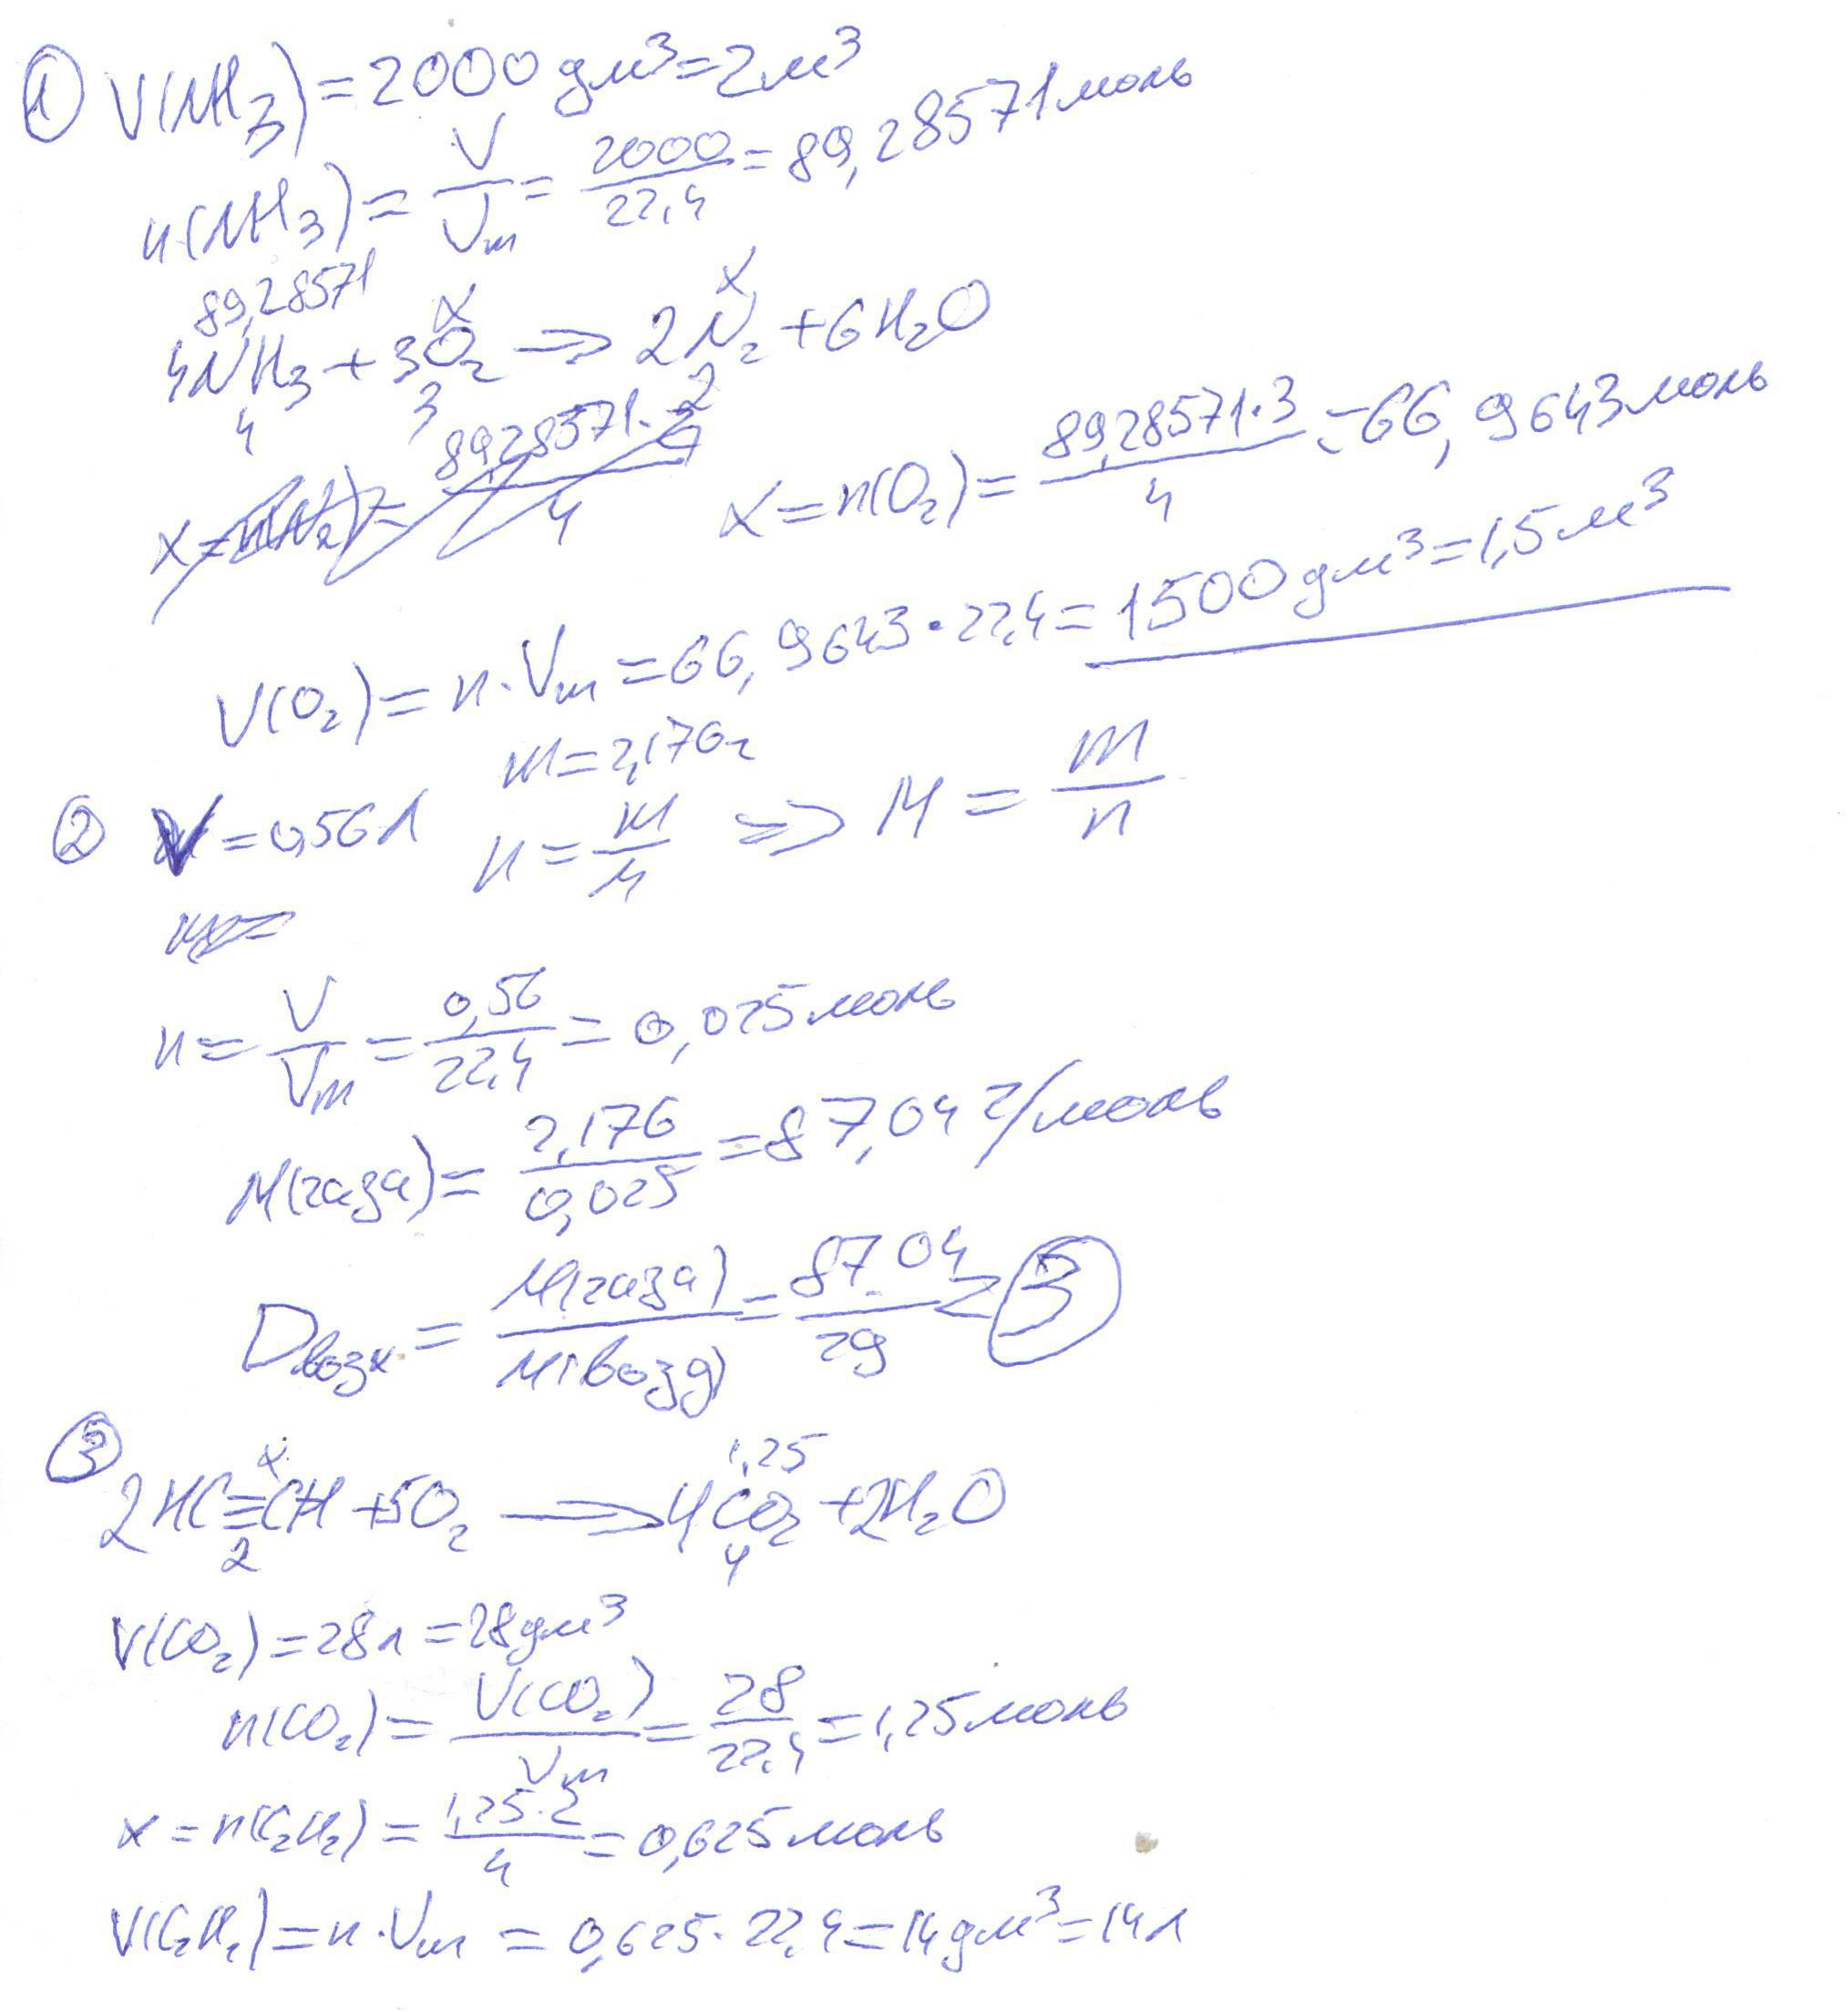 ① V(NH₃) = 2000 дм³ = 2 м³
n(NH₃) = V/Vm = 2000/22,4 = 89,28571 моль
89,28571 x x
4NH₃ + 3O₂ → 2N₂ + 6H₂O
4 3 2
x = n(N₂) = 89,28571·2/4
x = n(O₂) = 89,28571·3/4 = 66,9643 моль
V(O₂) = n·Vm = 66,9643·22,4 = 1500 дм³ = 1,5 м³
m = 2,176 г
② V = 0,56 л n = m/M ⇒ M = m/n
m =
n = V/Vm = 0,56/22,4 = 0,025 моль
M(газа) = 2,176/0,025 = 87,04 г/моль
Dвозд = M(газа)/M(возд) = 87,04/29 = 3
③ x 1,25
2HC≡CH + 5O₂ → 4CO₂ + 2H₂O
2 4
V(CO₂) = 28 л = 28 дм³
n(CO₂) = V(CO₂)/Vm = 28/22,4 = 1,25 моль
x = n(C₂H₂) = 1,25·2/4 = 0,625 моль
V(C₂H₂) = n·Vm = 0,625·22,4 = 14 дм³ = 14 л